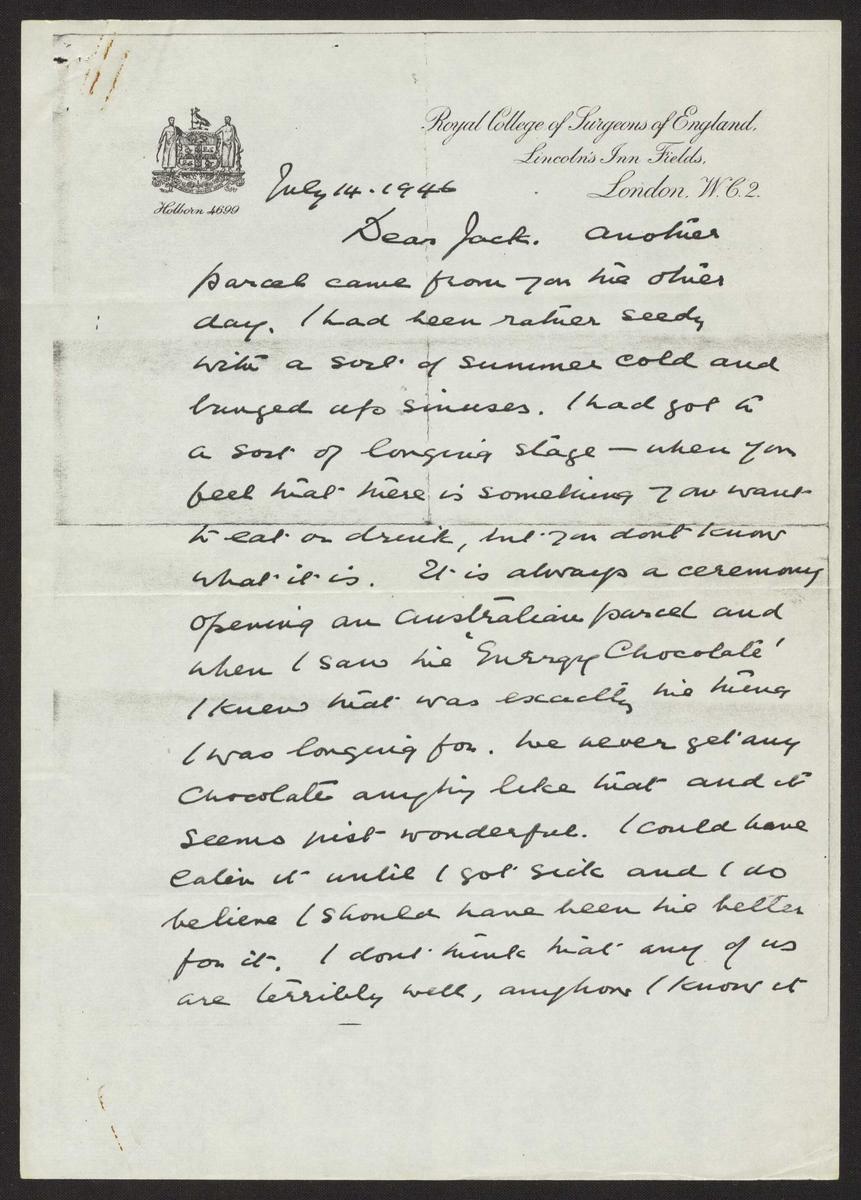 Royal College of Surgeons of England,
Lincoln's Inn Fields,
London, W.C.2.
Holborn 4699
July 14. 1946
Dear Jack. Another
parcel came from you the other
day. I had been rather seedy
with a sort of summer cold and
bunged up sinuses. I had got to
a sort of longing stage – when you
feel that there is something you want
to eat or drink, but you dont know
what it is. It is always a ceremony
opening an Australian parcel and
when I saw the 'Energy Chocolate'
I knew that was exactly the thing
I was longing for. We never get any
Chocolate anything like that and it
seems just wonderful. I could have
eaten it until I got sick and I do
believe I should have been the better
for it. I dont think that any of us
are terribly well, anyhow I know it